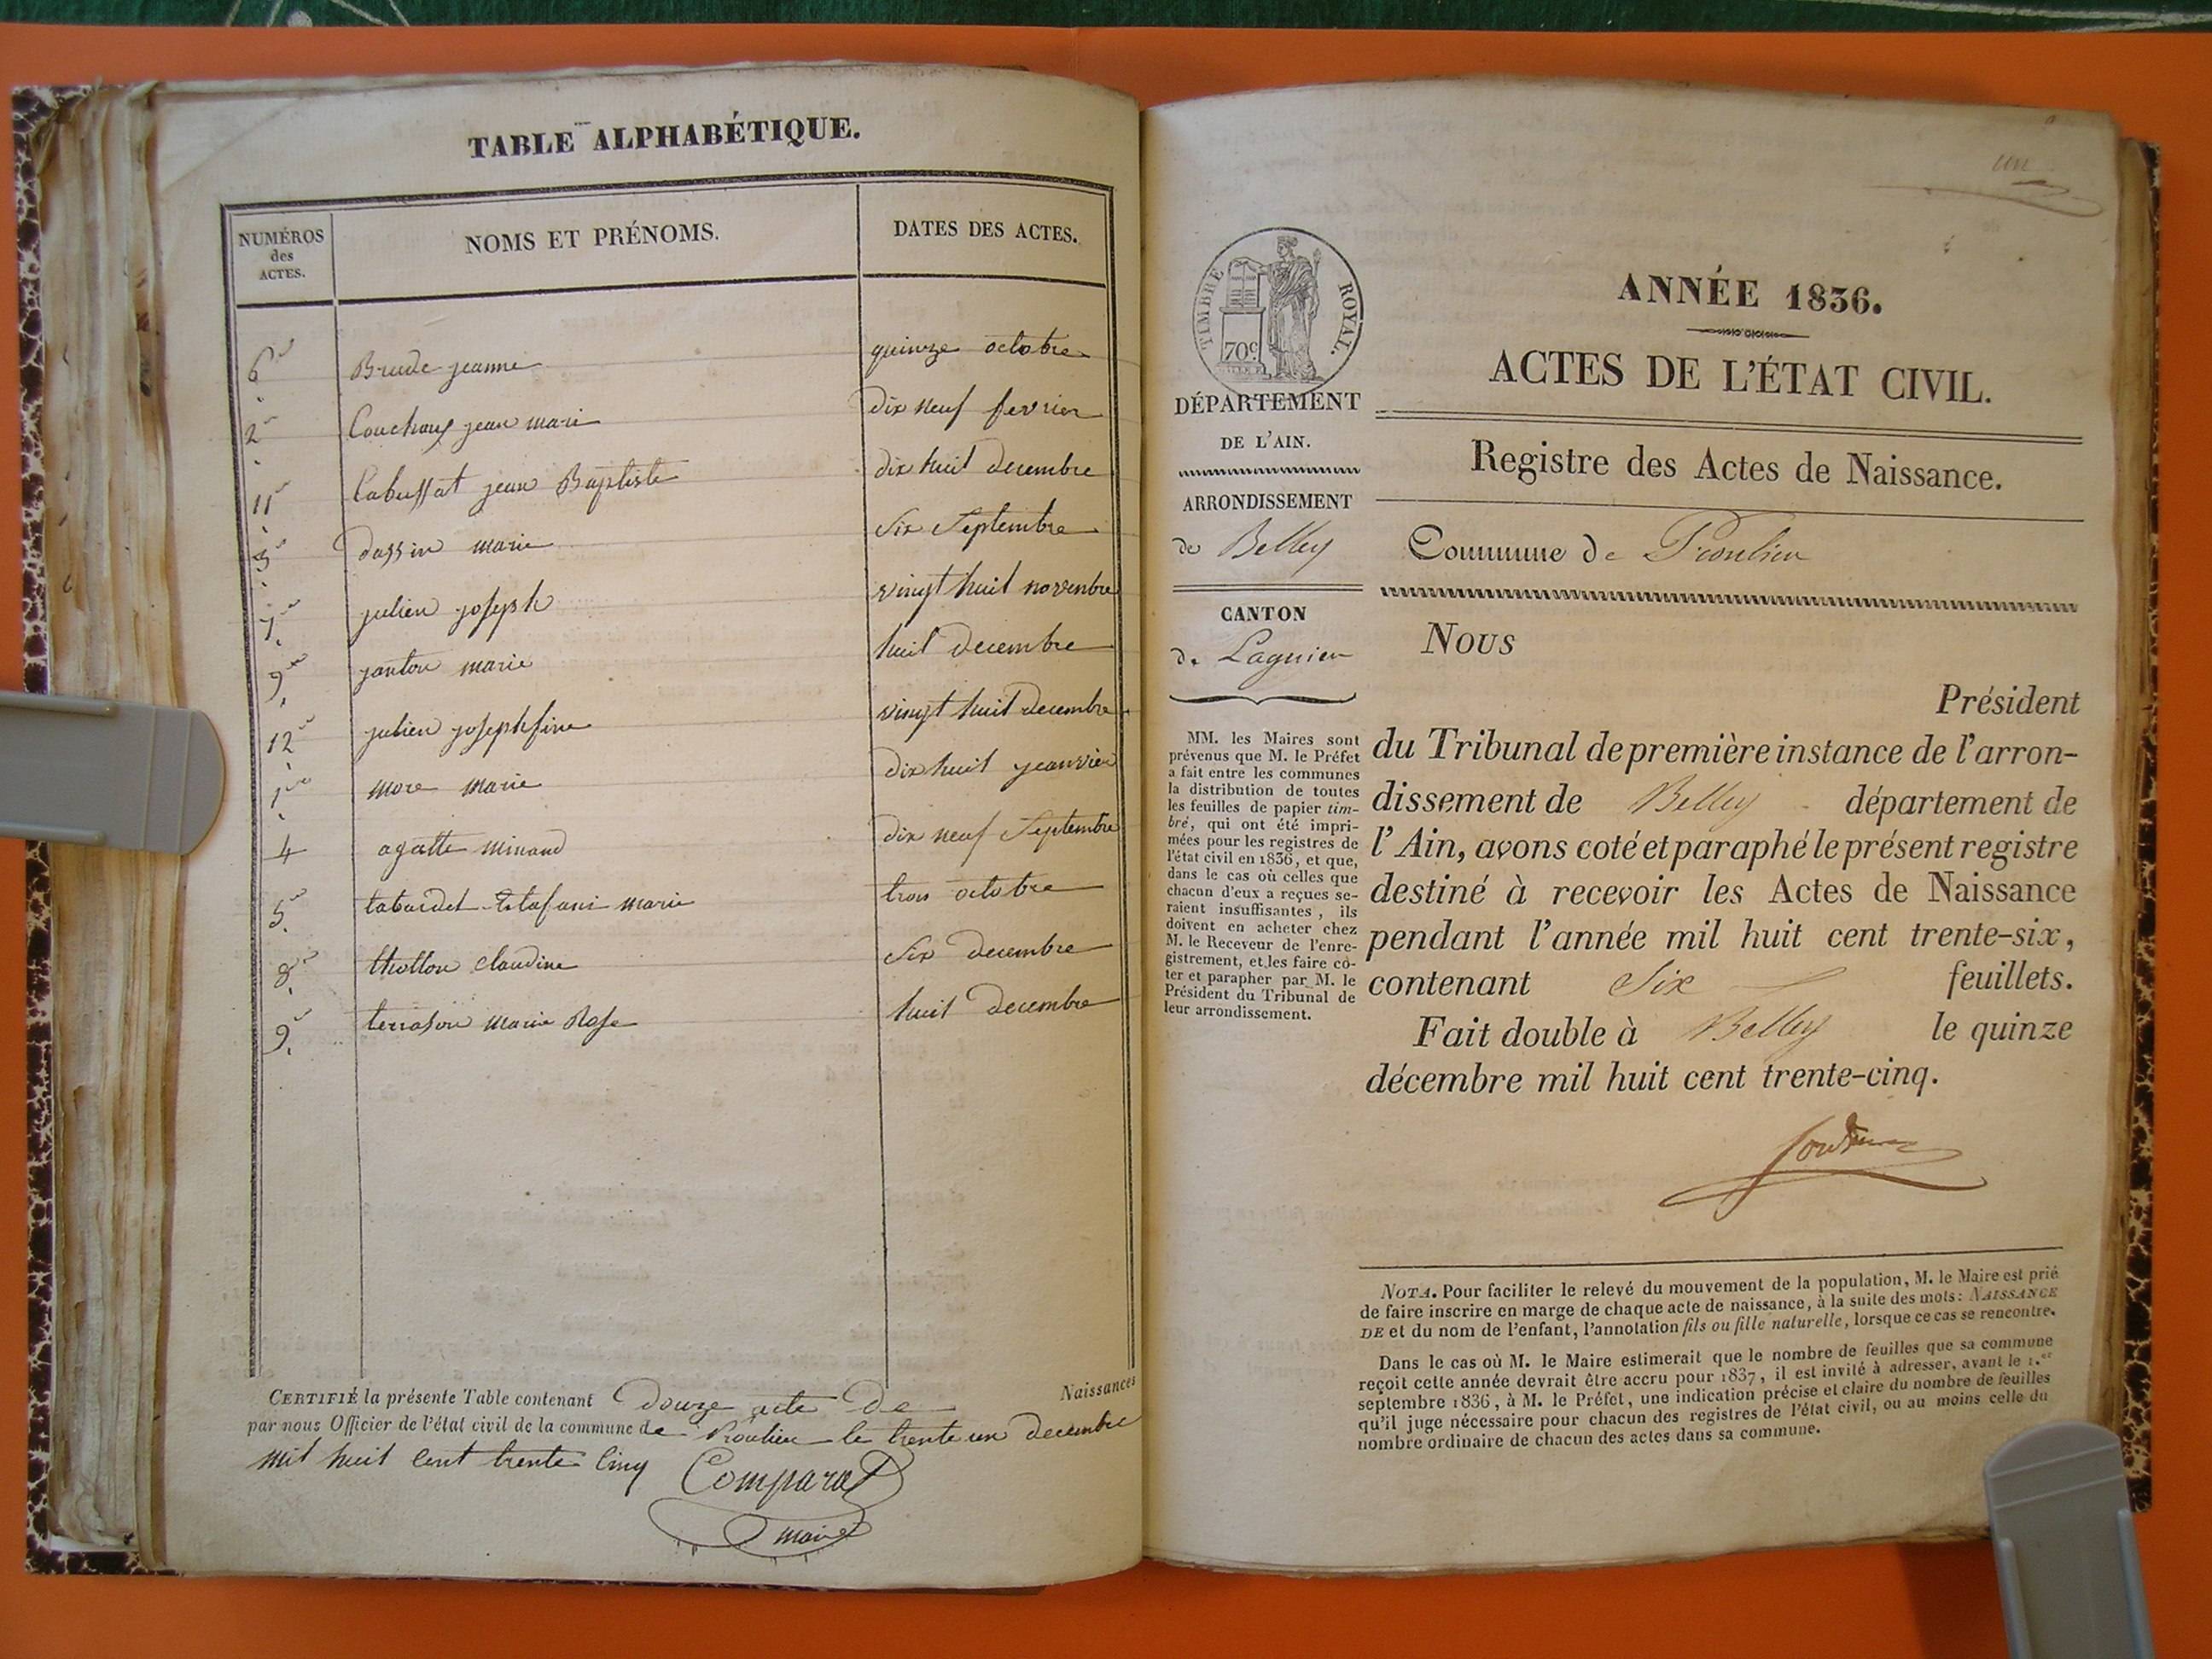 TABLE ALPHABÉTIQUE.
NUMÉROS des ACTES. NOMS ET PRÉNOMS. DATES DES ACTES.
6 Brude jeanne quinze octobre
2 Couchoux jean mari dix neuf fevrier
11 Cabussat jean Baptiste dix huit decembre
3 dassin marie Six Septembre
7 julien joseph vingt huit novembre
9 janton marie huit decembre
12 julien josephfine vingt huit decembre
1 more marie dix huit jeanvier
4 agatte minaud dix neuf Septembre
5 tabardet marie trois octobre
8 thollon claudine Six decembre
9 terrason marie Rose huit decembre
CERTIFIÉ la présente Table contenant Douze acte De Naissances
par nous Officier de l'état civil de la commune de Proulieu le trente un decembre
mil huit cent trente cinq Comparat
maire
un
TIMBRE ROYAL.
70c
DÉPARTEMENT
DE L'AIN.
ARRONDISSEMENT
de Belley
CANTON
de Lagnieu
MM. les Maires sont
prévenus que M. le Préfet
a fait entre les communes
la distribution de toutes
les feuilles de papier tim-
bré, qui ont été impri-
mées pour les registres de
l'état civil en 1836, et que,
dans le cas où celles que
chacun d'eux a reçues se-
raient insuffisantes, ils
doivent en acheter chez
M. le Receveur de l'enre-
gistrement, et les faire co-
ter et parapher par M. le
Président du Tribunal de
leur arrondissement.
ANNÉE 1836.
ACTES DE L'ÉTAT CIVIL.
Registre des Actes de Naissance.
Commune de Proulieu
Nous
Président
du Tribunal de première instance de l'arron-
dissement de Belley département de
l'Ain, avons coté et paraphé le présent registre
destiné à recevoir les Actes de Naissance
pendant l'année mil huit cent trente-six,
contenant Six feuillets.
Fait double à Belley le quinze
décembre mil huit cent trente-cinq.
NOTA. Pour faciliter le relevé du mouvement de la population, M. le Maire est prié
de faire inscrire en marge de chaque acte de naissance, à la suite des mots: NAISSANCE
DE et du nom de l'enfant, l'annotation fils ou fille naturelle, lorsque ce cas se rencontre.
Dans le cas où M. le Maire estimerait que le nombre de feuilles que sa commune
reçoit cette année devrait être accru pour 1837, il est invité à adresser, avant le 1.er
septembre 1836, à M. le Préfet, une indication précise et claire du nombre de feuilles
qu'il juge nécessaire pour chacun des registres de l'état civil, ou au moins celle du
nombre ordinaire de chacun des actes dans sa commune.